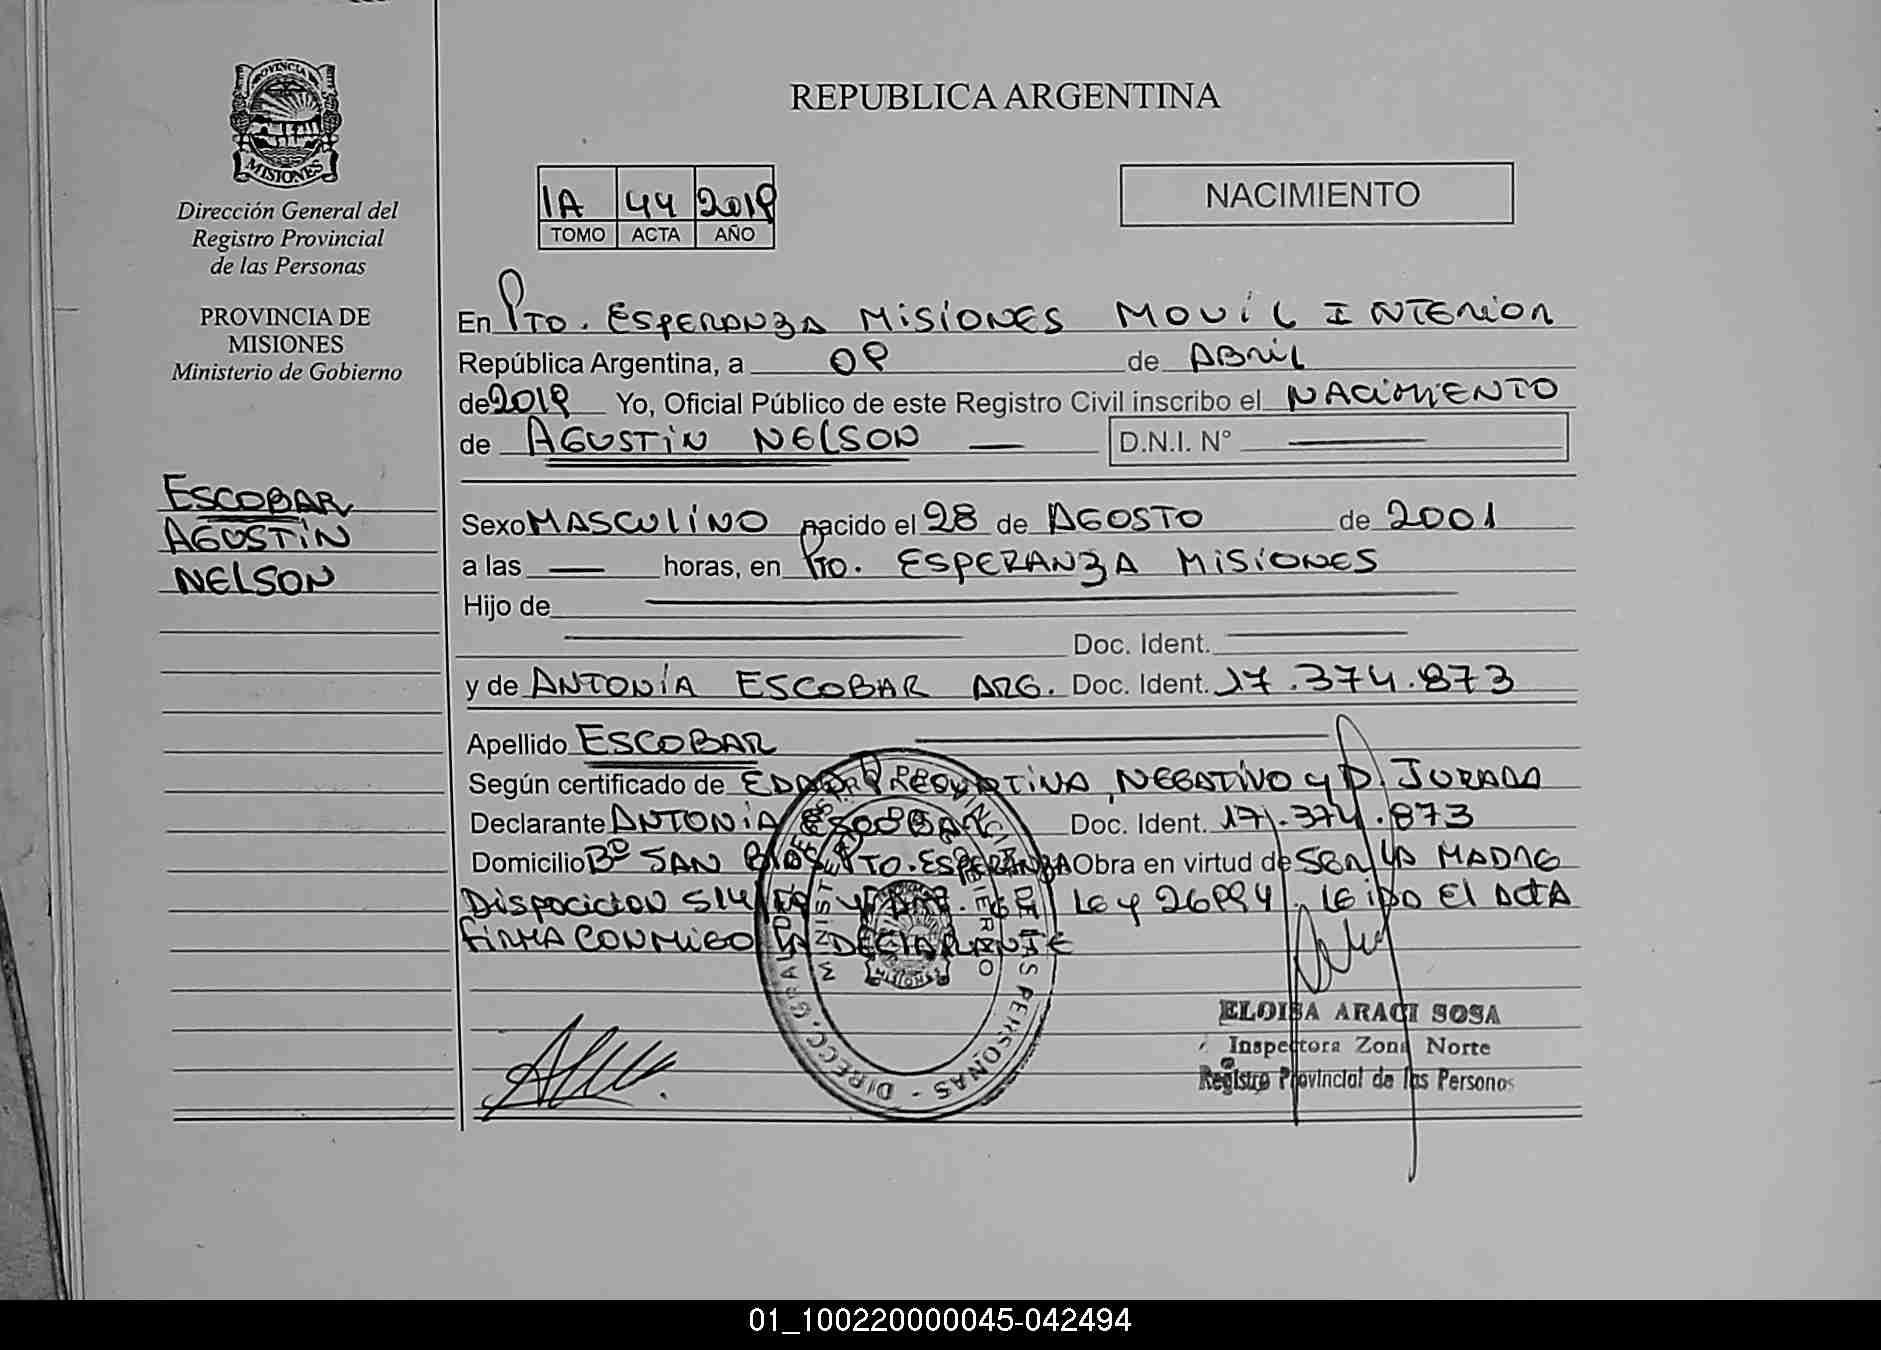 PROVINCIA
MISIONES
Dirección General del
Registro Provincial
de las Personas
PROVINCIA DE
MISIONES
Ministerio de Gobierno
ESCOBAR
AGUSTÍN
NELSON
REPUBLICA ARGENTINA
1A 44 2019
TOMO ACTA AÑO
NACIMIENTO
En Pto. ESPERANZA MISIONES MOVIL INTERIOR
República Argentina, a 09 de ABRIL
de 2019 Yo, Oficial Público de este Registro Civil inscribo el NACIMIENTO
de AGUSTÍN NELSON — D.N.I. N° —
Sexo MASCULINO nacido el 28 de AGOSTO de 2001
a las — horas, en Pto. ESPERANZA MISIONES
Hijo de —
— Doc. Ident. —
y de ANTONÍA ESCOBAR ARG. Doc. Ident. 17.374.873
Apellido ESCOBAR —
Según certificado de EDAD PRESUNTIVA, NEGATIVO y D. JURADA
Declarante ANTONÍA ESCOBAR Doc. Ident. 17.374.873
Domicilio Bº SAN BLAS Pto. ESPERANZA Obra en virtud de SER LA MADRE
DISPOCICION 514 Ley 26994. LEIDO El ActA
FIRMA CONMIGO LA DECLARANTE
DIRECC. GRAL. DE LAS PERSONAS
MINISTERIO DE GOBIERNO
MISIONES
ELOISA ARACI SOSA
Inspectora Zona Norte
Registro Provincial de las Personas
01_100220000045-042494